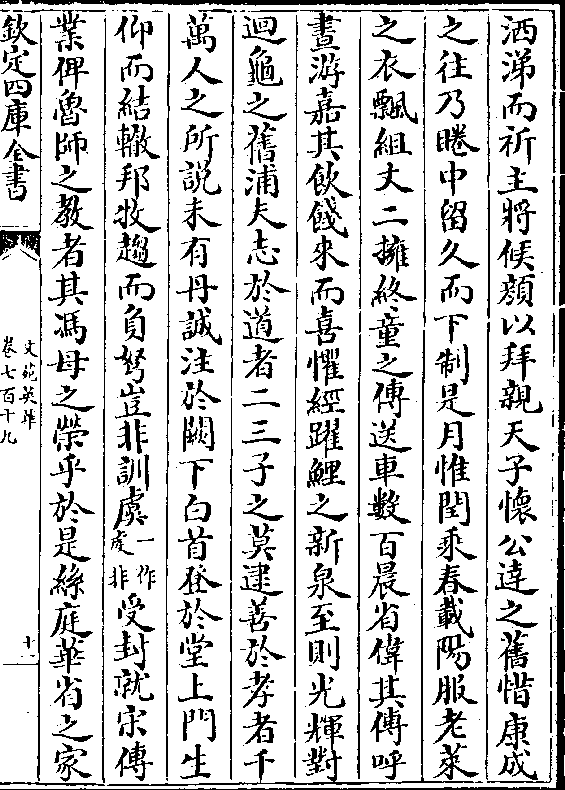 洒涕而祈主將候顔以拜親天子懐公逹之舊惜康成
之往乃睠中留久而下制是月惟閏乘春載陽服老萊
之衣飄組丈二擁終童之傳送車數百晨省偉其傳呼
晝游嘉其飲餞來而喜懼經躍鯉之新泉至則光輝對
迴龜之舊浦夫志於道者二三子之莫逮善於孝者千
萬人之所説未有丹誠注於闕下白首登於堂上門生
仰而結轍邦牧趨而負弩豈非訓虞一作虔非受封就宋傳
業俾魯師之教者其馮母之榮乎於是絲庭華省之家
欽定四庫全書
文苑英華
卷七百十九
十一